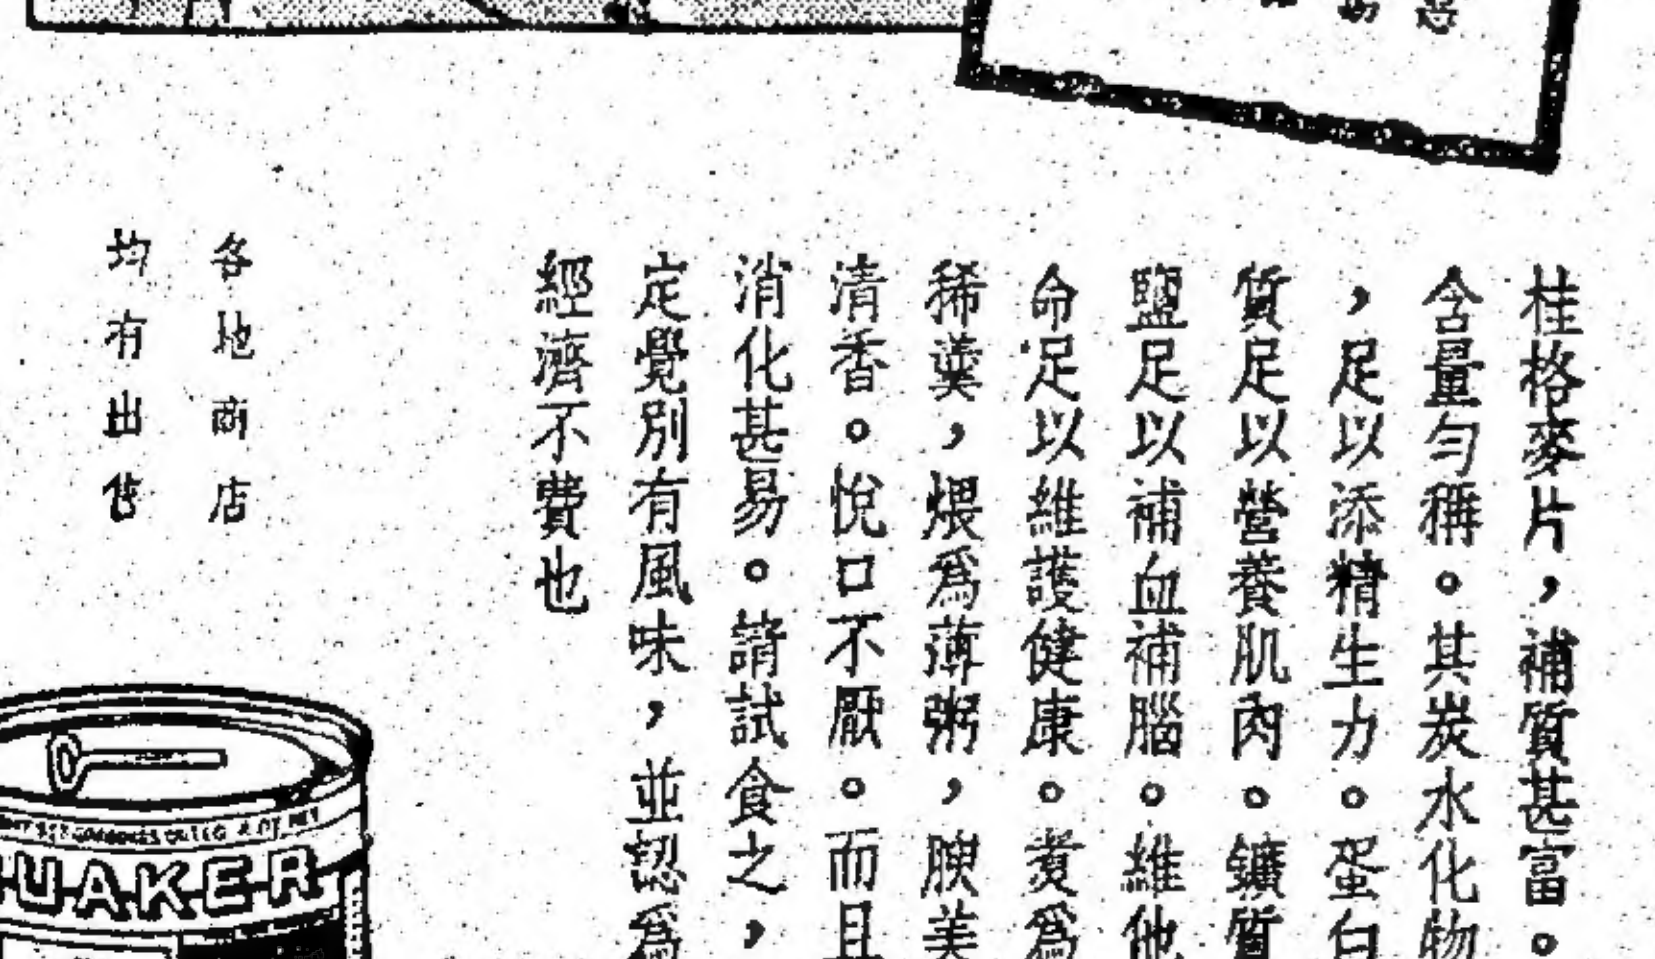 桂格麥片，補質甚富。
含量勻稱。其炭水化物
，足以添精生力。蛋白
質足以營養肌肉。鑛質
鹽足以補血補腦。維他
命足以維護健康。煑爲
稀羹，煨爲薄粥，腴美
清香。悅口不厭。而且
消化甚易。請試食之，
定覺別有風味，並認爲
經濟不費也
各地商店
均有出售
QUAKER